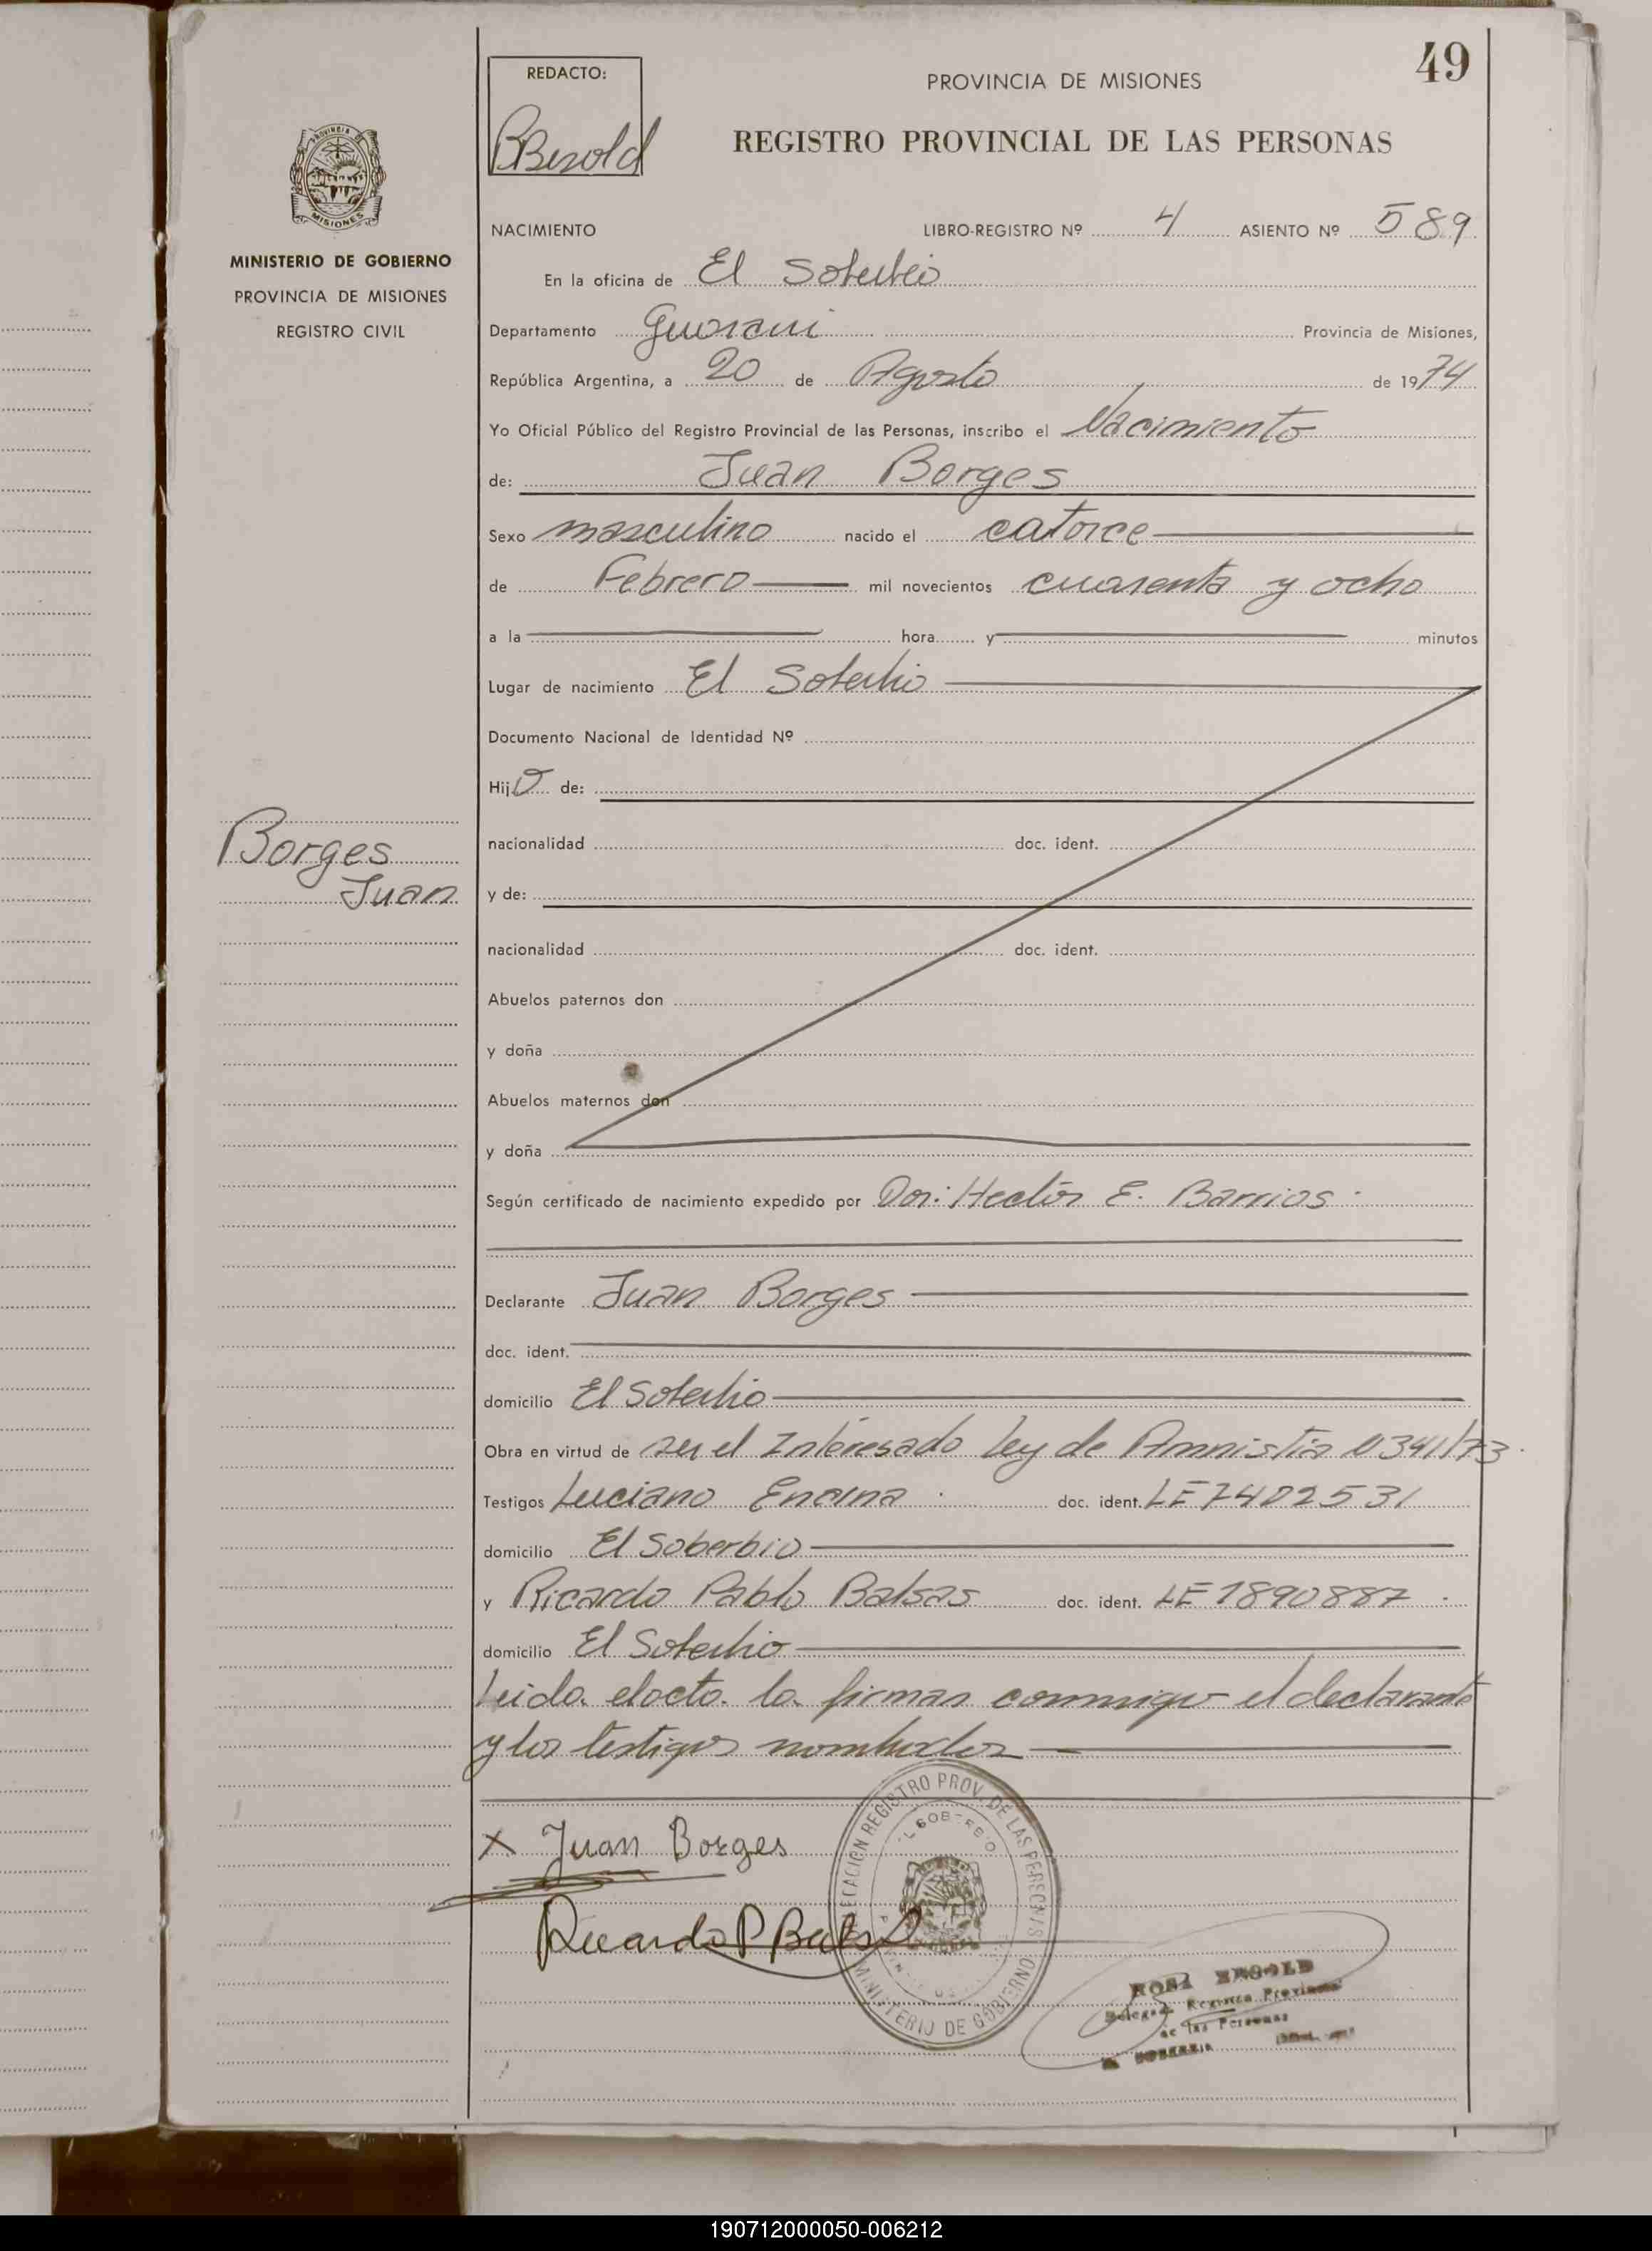 49
REDACTO:
RBezold
PROVINCIA DE MISIONES
REGISTRO PROVINCIAL DE LAS PERSONAS
MISIONES
MINISTERIO DE GOBIERNO
PROVINCIA DE MISIONES
REGISTRO CIVIL
NACIMIENTO LIBRO-REGISTRO Nº 4 ASIENTO Nº 589
En la oficina de El Soberbio
Departamento Guarani Provincia de Misiones,
República Argentina, a 20 de Agosto de 1974
Yo Oficial Público del Registro Provincial de las Personas, inscribo el Nacimiento
de: Juan Borges
Sexo masculino nacido el catorce
de Febrero mil novecientos cuarenta y ocho
a la hora y minutos
Lugar de nacimiento El Soberbio
Documento Nacional de Identidad Nº
Hijo de:
Borges
Juan
nacionalidad doc. ident.
y de:
nacionalidad doc. ident.
Abuelos paternos don
y doña
Abuelos maternos don
y doña
Según certificado de nacimiento expedido por Dor: Hector E. Barrios.
Declarante Juan Borges
doc. ident.
domicilio El Soberbio
Obra en virtud de ser el Interesado Ley de Amnistia N 341/73.
Testigos Luciano Encina doc. ident. LE 7402531
domicilio El Soberbio
y Ricardo Pablo Balsas doc. ident. LE 1890887.
domicilio El Soberbio
Leida el acta la firman conmigo el declarante
y los testigos nombrados
x Juan Borges
Ricardo P Balsas
REGISTRO PROV. DE LAS PERSONAS
MINISTERIO DE GOBIERNO
ROSA BEZOLD
Registro Provincial
de las Personas
190712000050-006212